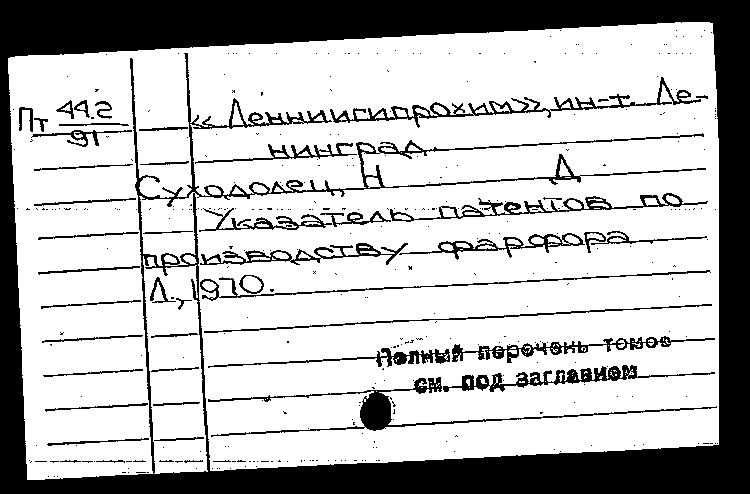 Пт 44.2
91
«Ленниигипрохим», ин-т. Ле-
нинград.
Суходолец, Н Д
Указатель патентов по
производству фарфора.
Л., 1970.
Полный перечень томов
см. под заглавием